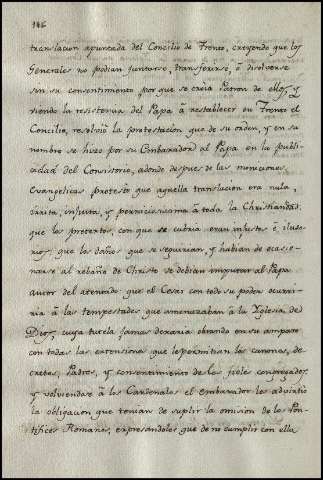 146
translacion apuntada del Concilio de Trento, creyendo que los
Generales no podian juntarse, transferirse, ó disolverse
sin su consentimiento por que se creia Patron de ellos, y
viendo la resistencia del Papa á restablecer en Trento el
Concilio, resolvió la protestacion que de su orden, y en su
nombre se hizo por su Embaxador al Papa en la publi-
cidad del Consistorio, adonde despues de las moniciones
Evangelicas protestó que aquella translacion era nula,
irrita, injusta, y perniciosisima á toda la Christiandad:
que los pretextos, con que se cubria eran injustos é iluso-
rios: que los daños que se seguirian, y habian de ocasio-
narse al rebaño de Christo se debian imputar al Papa
autor del atentado: que el Cesar con todo su poder ocurri-
ria á las tempestades que amenazaban á la Yglesia de
Dios, cuya tutela jamas dexaria obrando en su amparo
con todas las extensiones que le permitian los canones, de-
cretos, Padres, y consentimiento de los fieles congregados,
y volviendose á los Cardenales el embaxador les advirtió
la obligacion que tenian de suplir la omision de los Pon-
tifices Romanos, expresandoles que de no cumplir con ella